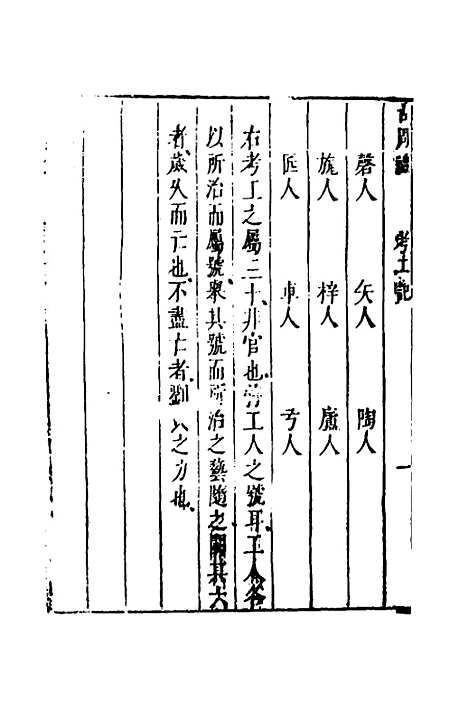 古周禮 考工記 一
磬人 矢人 陶人
旊人 梓人 廬人
匠人 車人 弓人
右考工之屬三十非官也營工人之號耳工人各
以所治而屬號泉其號而所治之藝隨之闕其六
者歲久而亡也不盡亡者劉氏之力也